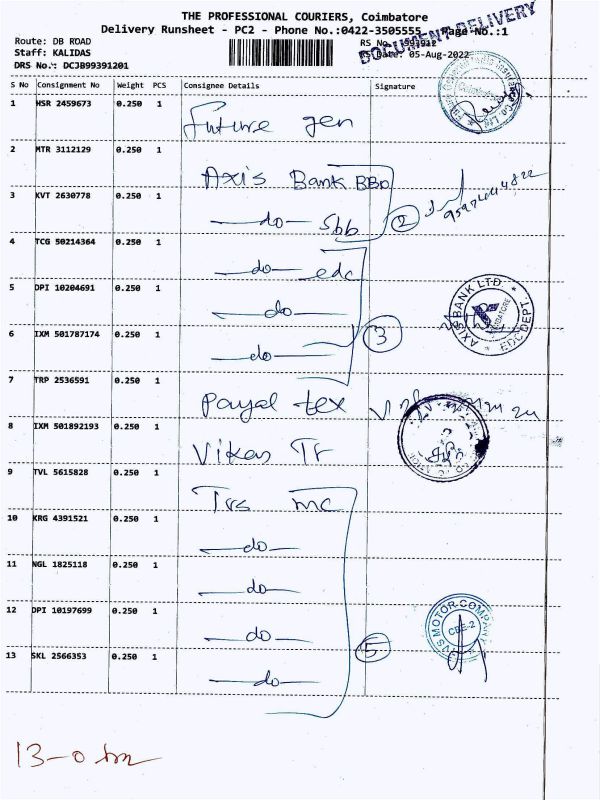 THE PROFESSIONAL COURIERS, Coimbatore
Delivery Runsheet - PC2 - Phone No.:0422-3505555 Page No.:1
DOCUMENT DELIVERY
Route: DB ROAD
RS No.
Staff: KALIDAS
RS Date: 05-Aug-2022
DRS No.: DCJB99391201
S No Consignment No Weight PCS Consignee Details Signature
1 HSR 2459673 0.250 1 Future gen
2 MTR 3112129 0.250 1 Axis Bank BBD
3 KVT 2630778 0.250 1 —do— Sbb 2
4 TCG 50214364 0.250 1 —do— edc
5 DPI 10204691 0.250 1 —do—
AXIS BANK LTD. * COIMBATORE * EDC DEPT.
6 IXM 501787174 0.250 1 —do— 3
7 TRP 2536591 0.250 1 Payal tex
8 IXM 501892193 0.250 1 Vikas Tr
9 TVL 5615828 0.250 1 Tvs mc
10 KRG 4391521 0.250 1 —do—
11 NGL 1825118 0.250 1 —do—
12 DPI 10197699 0.250 1 —do—
TVS MOTOR COMPANY CBE-2
13 SKL 2566353 0.250 1 —do— 5